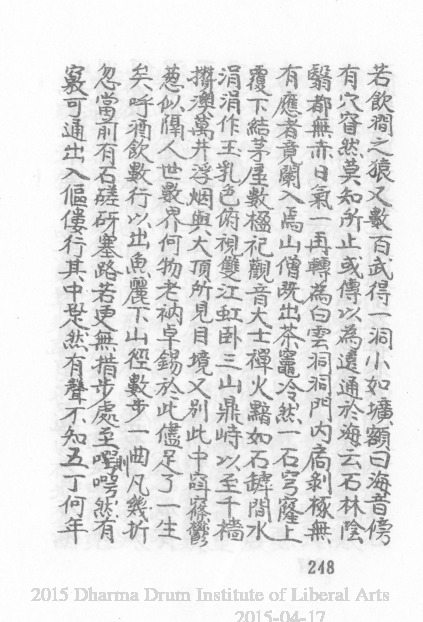 若飲澗之猿又數百武得一洞小如壙額曰海昔傍
有穴窅然莫知所止或傳以為遠通於海云石林陰
翳都無赤日氣一再轉為白雲洞洞門內扃剝椓無
有應者竟闌入焉山僧既出茶竈冷然一石穹窿上
覆下結茅屋數楹祀觀音大士禪火黯如石罅間水
涓涓作玉乳色俯視雙江虹卧三山鼎峙以至千檣
攢澳萬井浮烟與大頂所見目境又別此中窅窱鬱
葱似隔人世數界何物老衲卓錫於此儘足了一生
矣呼酒飲數行以出魚麗下山徑數步一曲凡幾折
忽當前有石磋砑塞路若更無措步處至則㗲㟧然有
竅可通出入傴僂行其中跫然有聲不知五丁何年
248
2015 Dharma Drum Institute of Liberal Arts
2015-04-17